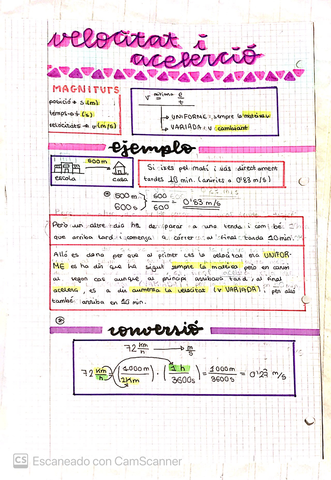 velocitat i
acelerció
MAGNITUTS
posició → s (m)
temps → t (s)
velocitades → v (m/s)
v mitjana = e/t
→ UNIFORME: sempre la mateixa
→ VARIADA: v cambiant
ejemplo
500m
escola
casa
Si ises pel matí i vas directament
tardes 10 min. (aniries a 0'83 m/s)
500m 500
600s 600 = 0'83 m/s
Però un altre dia he de parar a una tenda i com bé
que arriba tard i comença a córrer: al final tarda 10min.
Això es dona per què al primer cas la velocitat era UNIFOR-
ME es ha dir que ha sigut sempre la mateixa però en canvi
al segon cas aunque al principi arribava tard, al final
acelera, es a dir aumenta la velocitat (v VARIADA), per això
també arriba en 10 min.
conversió
72 km/h → m/s
72 km/h = (1000m/1km) · (1h/3600s) = 1000m/3600s = 0'27 m/s
CS Escaneado con CamScanner